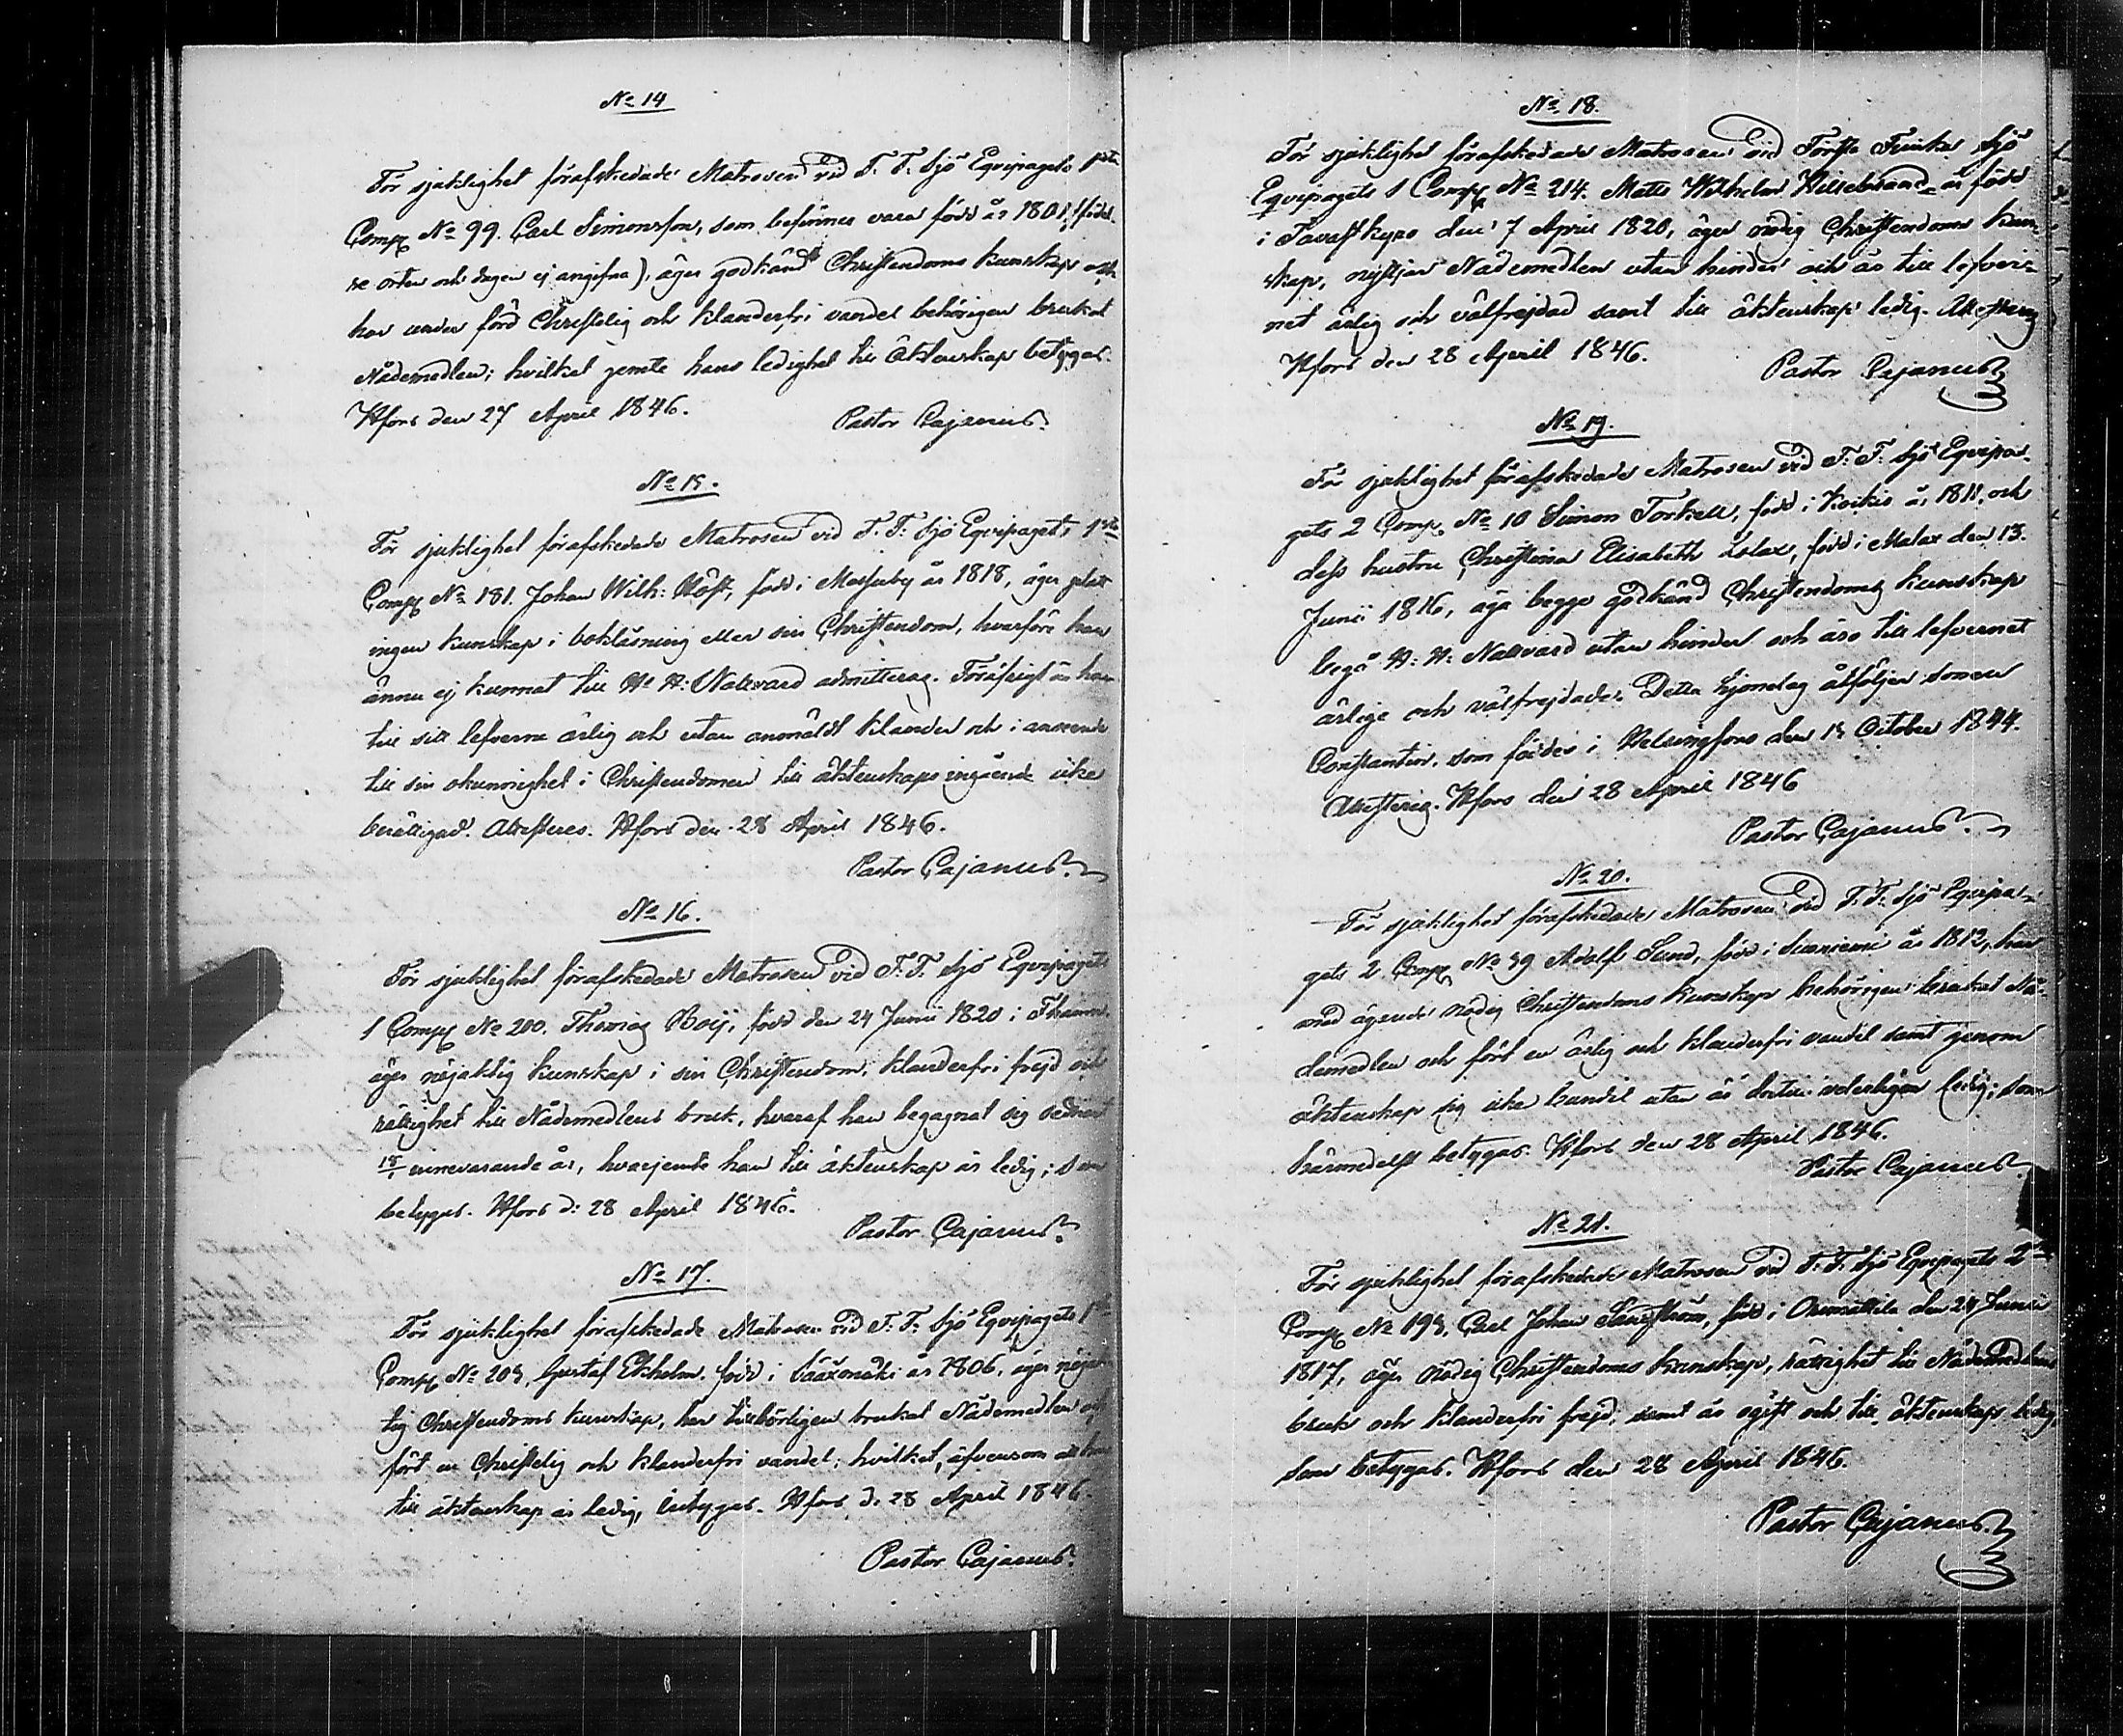 No 14
För sjuklighet förafskedade Matrosen vid F. F. Sjö Eqvipagets 1sta
Comp No 99. Carl Simonsson, som befinnes vara född år 1801, (födel-
se orten och dagen ej angifna), äger godkänd Christendoms kunskap och
har under förd Christelig och klanderfri vandel behörigen brukat
Nådemedlen; hvilket jemte hans ledighet till äktenskap betygas.
Hfors den 27 April 1846.
Pastor Cajanus.
No 15.
För sjuklighet förafskedade Matrosen vid F. F. Sjö Eqvipagets 1sta
Comp No 181. Johan Wilh: Höst, född i Massaby år 1818, äger platt
ingen kunskap i bokläsning eller sin Christendom, hvarföre han
ännu ej kunnat till H. H. Nattvard admitteras. Föröfrigt är han
till sitt lefverne ärlig och utan anmäldt klander och i anseende
till sin okunnighet i Christendomen till äktenskaps ingående icke
berättigad. Attesteres. Hfors den 28 April 1846.
Pastor Cajanus.
No 16.
För sjuklighet förafskedade Matrosen vid F. F. Sjö Eqvipagets
1 Comp No 200. Thomas Boij, född den 24 Junii 1820 i
äger nöjaktig kunskap i sin Christendom, klanderfri frejd och
rättighet till Nådemedlens bruk, hvaraf han begagnat sig sednast
innevarande år, hvarjemte han till äktenskap är ledig; som
betygas. Hfors d: 28 April 1846.
Pastor Cajanus.
No 17.
För sjuklighet förafskedade Matrosen vid F. F. Sjö Eqvipagets 1sta
Comp No 203, Gustaf Ekholm, född i Sääxmäki år 1806, äger nöjak-
tig Christendoms kunskap, har tillbörligen brukat Nådemedlen och
fört en Christelig och klanderfri vandel; hvilket, äfvensom att han
till äktenskap är ledig, betygas. Hfors d. 28 April 1846.
Pastor Cajanus.
No 18.
För sjuklighet förafskedade Matrosen vid Första Finska Sjö
Eqvipagets 1 Comp No 214. Matts Wilhelm Hillebrand är född
i Tavastkyro den 7 April 1820, äger nödig Christendoms kun-
skap, nyttjar Nådemedlen utan hinder och är till lefver-
net ärlig och välfrejdad samt till äktenskap ledig. Attesteras
Hfors den 28 April 1846.
Pastor Cajanus
No 19.
För sjuklighet förafskedade Matrosen vid F. F. Sjö Eqvipa-
gets 2 Comp. No 10 Simon Torkell, född i Koikis år 1811. och
dess hustru Christina Elisabeth född i Malax den 13.
Junii 1816, äga begge godkänd Christendoms kunskap
begå H: H: Nattvard utan hinder och äro till lefvernet
ärlige och välfrejdade. Detta hjonelag åtföljer sonen
Constantin, som föddes i Helsingfors den 15 October 1844.
Attesteras. Hfors den 28 April 1846
Pastor Cajanus.
No 20.
För sjuklighet förafskedade Matrosen vid F. F. Sjö Eqvipa-
gets 2. Comp No 39 Adolf Sund, född i Suoniemi år 1812, har
med ägande nödig Christendoms kunskap behörigen brukat Nå-
demedlen och fört en ärlig och klanderfri vandel samt genom
äktenskap sig icke bundit utan är dertill ledig; som
härmedelst betygas. Hfors den 28 April 1846.
Pastor Cajanus.
No 21.
För sjuklighet förafskedade Matrosen vid F. F. Sjö Eqvipagets 2dra
Comp No 193, Carl Johan Sandström, född i Orimattila den 24 Junii
1817, äger nödig Christendoms kunskap, rättighet till Nådemedlens
bruk och klanderfri frejd, samt är ogift och till äktenskap ledig
som betygas. Hfors den 28 April 1846.
Pastor Cajanus.